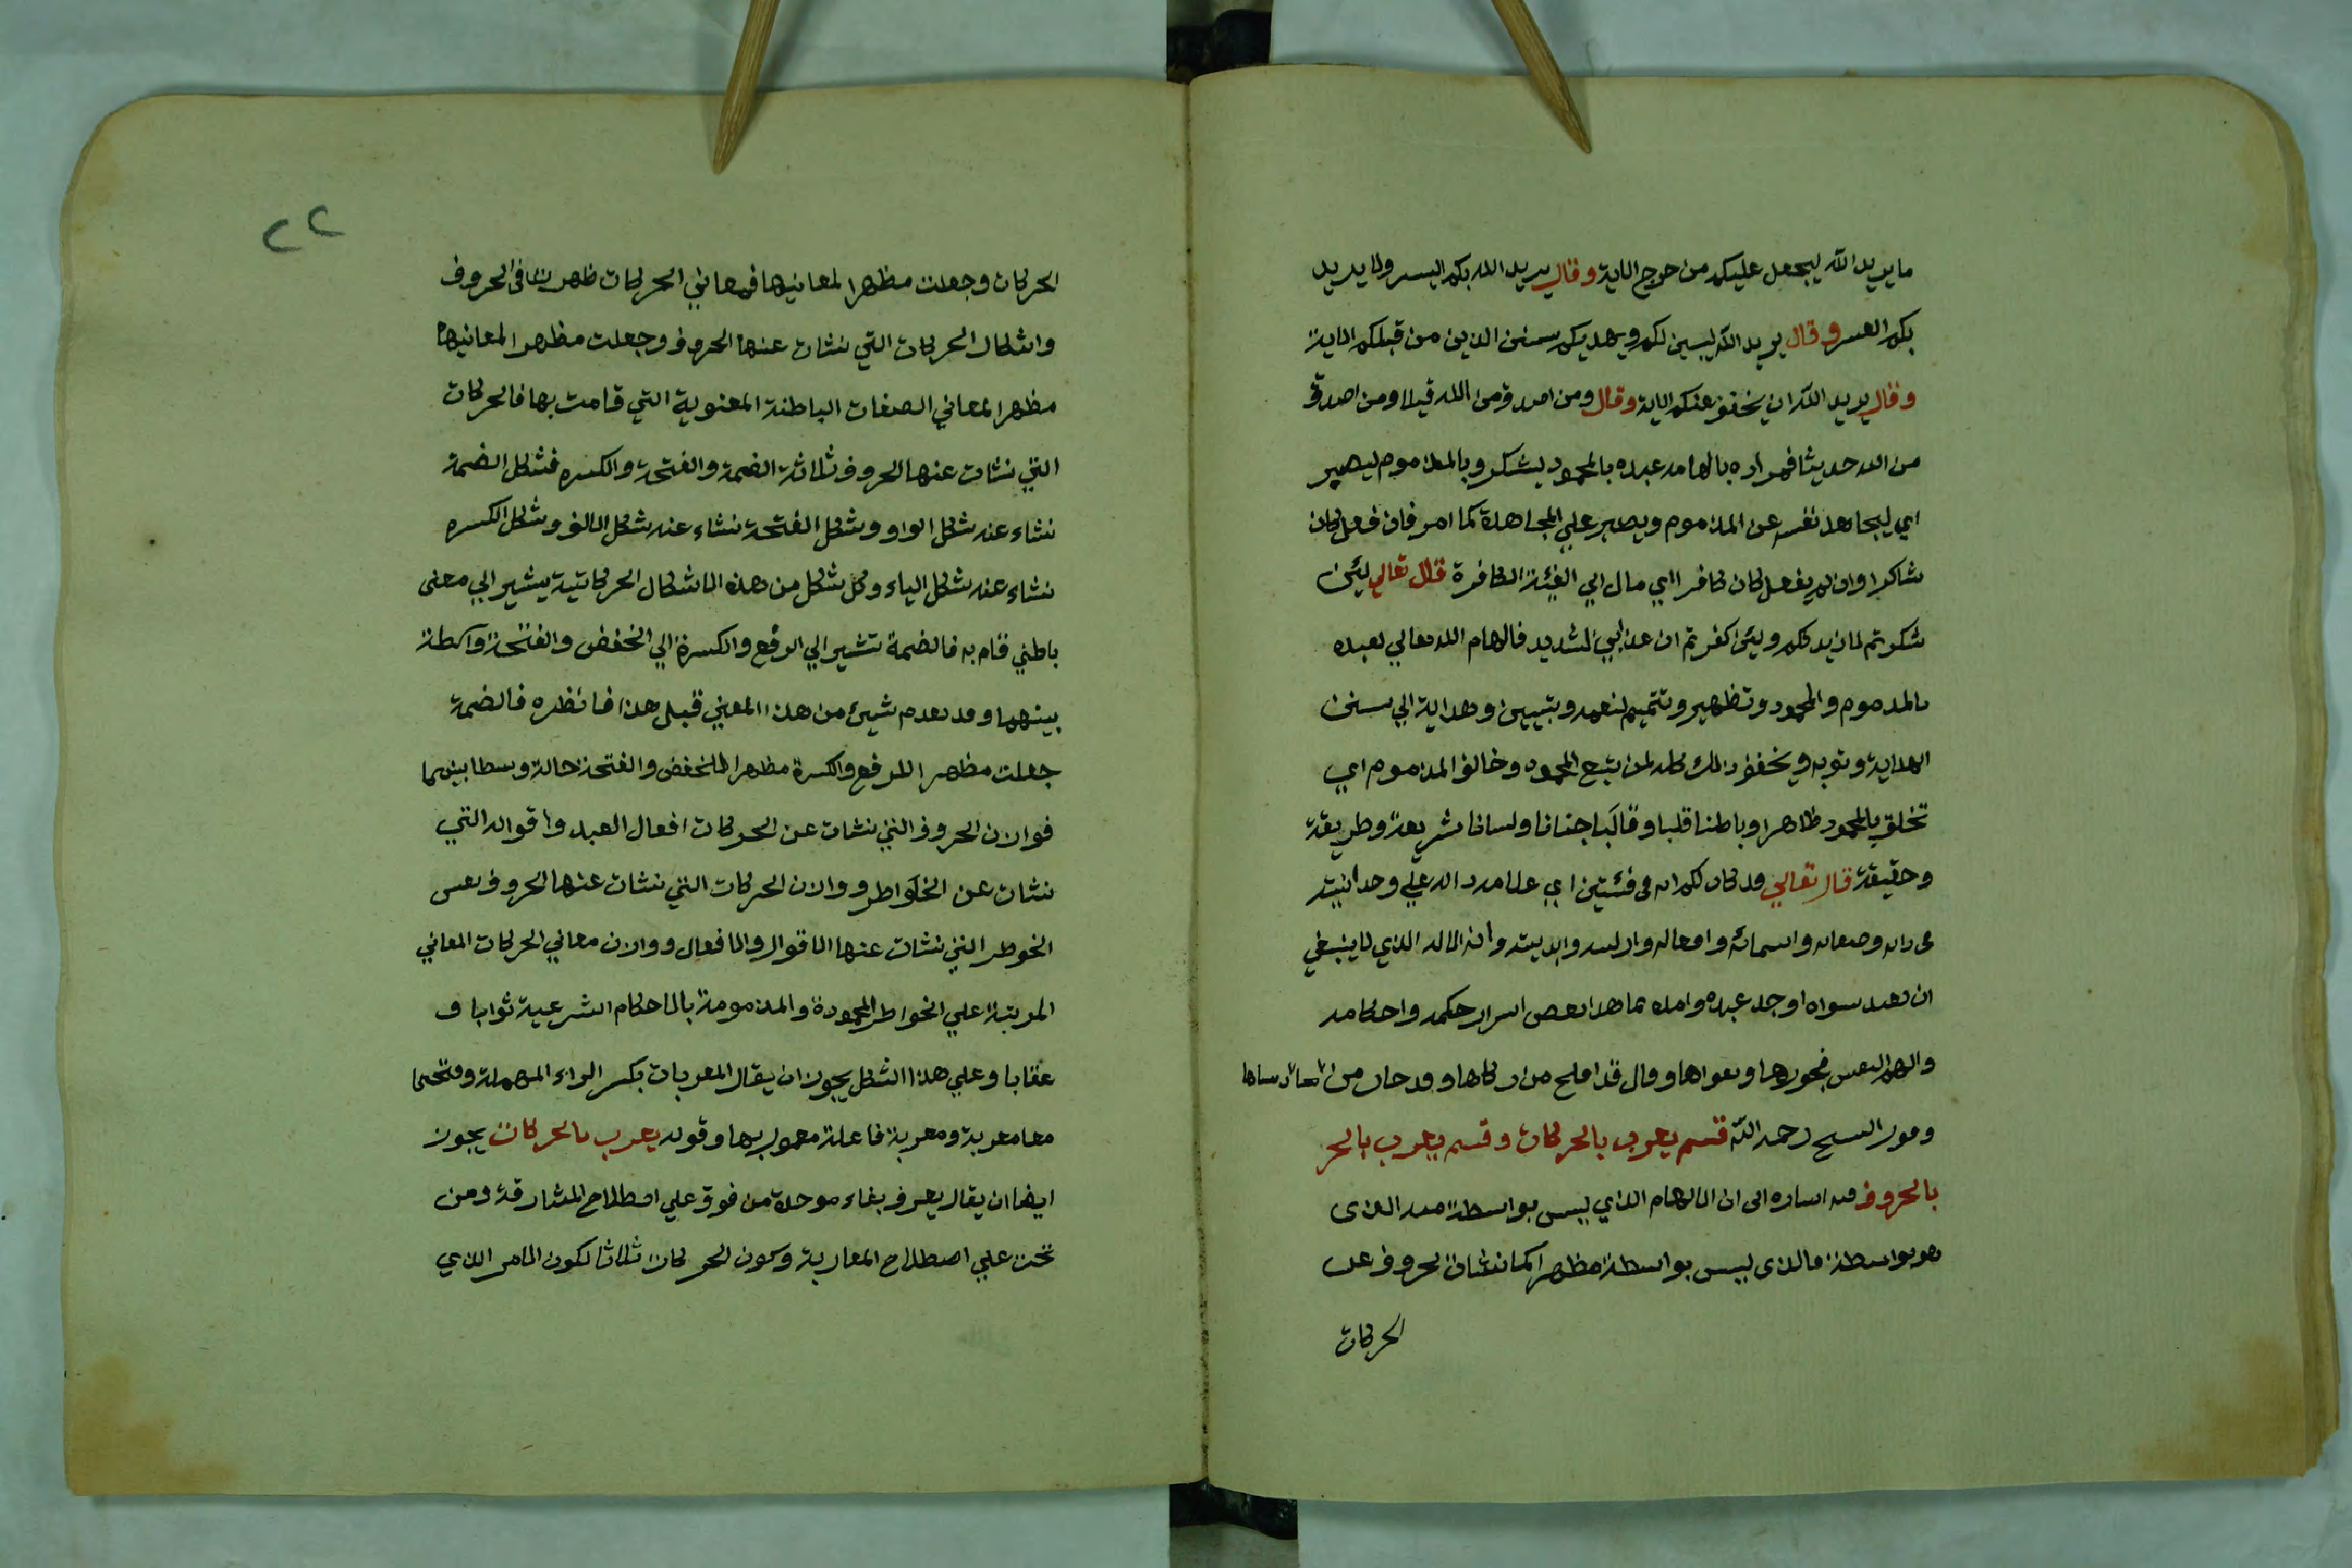 ما يريد الله ليجعل عليكم من حرج الاية وقال يريد الله بكم اليسر ولا يريد
بكم العسر وقال يريد الله ليبين لكم ويهديكم سنن الذين من قبلكم الاية
وقال يريد الله ان يخفف عنكم الاية وقال ومن اصدق من الله قيلا ومن اصدق
من الله حديثا فمراده بالهامه عبده بالمحمود ليشكر وبالمذموم ليصبر
اي ليجاهد نفسه عن المذموم ويصبر علي المجاهدة كما امر فان فعل كان
شاكرا وان لم يفعل كان كافرا اي مال الي الفئة الكافرة قال تعالي لئن
شكرتم لازيدنكم ولئن كفرتم ان عذابي لشديد فالهام الله تعالي لعبده
بالمذموم والمحمود وتطهير وتتميم لنعمه وتبيين وهداية الي سنن
الهداية وتوبه وتخفف ذلك كله لمن يتبع المحمود وخالف المذموم اي
تخلق بالمحمود ظاهرا وباطنا قلبا وقالبا جنانا ولسانا شريعة وطريقة
وحقيقة قال تعالي قد كان لكم اية في فئتين اي علامة دالة علي وحدانيته
في ذاته وصفاته واسمائه وافعاله وازليته وابديته وانه الاله الذي لا ينبغي
ان يعبد سواه اوجد عبده وامده بما هذا بعض اسرار حكمه واحكامه
والهم النفس فجورها وتقواها وقال قد افلح من زكاها وقد خاب من دساها
وقول الشيخ رحمه الله قسم يعرب بالحركات وقسم يعرب بالحر
بالحروف فيه اشارة الى ان الالهام الذي ليس بواسطة مبد الذى
هو بواسطة فالذى ليس بواسطة مظهرا كما نشات الحروف عن
الحركات
٢٢
الحركات وجعلت مظهرا لمعانيها فمعاني الحركات ظهرت في الحروف
واشكال الحركات التي نشات عنها الحروف وجعلت مظهرا لمعانيها
مظهرا لمعاني الصفات الباطنة المعنوية التي قامت بها فالحركات
التي نشات عنها الحروف ثلاثة الضمة والفتحة والكسره فشكل الضمة
نشاء عنه شكل الواو وشكل الفتحة نشاء عنه شكل الالف وشكل الكسره
نشاء عنه شكل الياء وكل شكل من هذه الاشكال الحركاتية يشير الي معنى
باطني قام به فالضمة تشير الي الرفع والكسرة الي الخفض والفتحة واسطة
بينهما وقد تقدم شيئ من هذا المعني قبل هذا فانظره فالضمة
جعلت مظهرا للرفع والكسرة مظهرا للخفض والفتحة حالة وسطا بينهما
فوازن الحروف التي نشات عن الحركات افعال العبد واقواله التي
نشات عن الخواطر ووازن الحركات التي نشات عنها الحروف نفس
الخوطر التي نشات عنها الاقوال والافعال ووازن معاني الحركات المعاني
المرتبة علي الخواطر المحمودة والمذمومة بالاحكام الشرعية ثوابا و
عقابا وعلي هذا الشكل يجوز ان يقال المعربات بكسر الراء المهملة وفتحها
معا معربة ومعربة فاعلة معمول بها وقوله يعرب بالحركات يجوز
ايضا ان يقال يعرف بفاء موحدة من فوق علي اصطلاح المشارقة ومن
تحت علي اصطلاح المغاربة وكون الحركات ثلاثا لكون الامر الذي